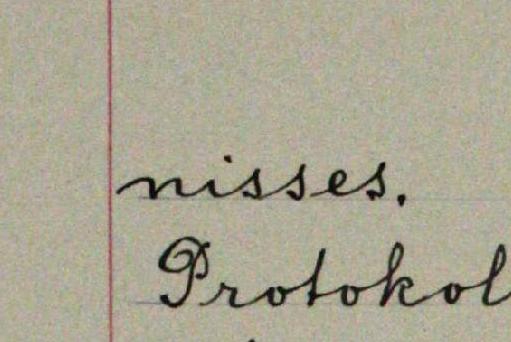 nisses.
Protokol